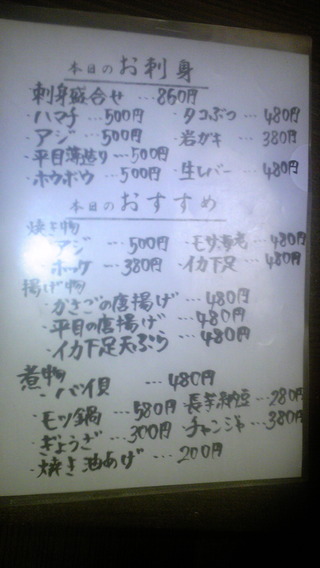 本日のお刺身
刺身盛合せ…860円
・ハマチ…500円
・タコぶつ…480円
・アジ…500円
・岩ガキ…380円
・平目薄造り…500円
・ホウボウ…500円
・生レバー…480円
本日のおすすめ
焼き物
・アジ…500円
・ホッケ…380円
・イカ下足…480円
揚げ物
・平目の唐揚げ…480円
・イカ下足天ぷら…480円
煮物
・バイ貝…480円
・モツ鍋…580円
・ぎょうざ…300円
・焼き油あげ…200円
長芋納豆…280円
チャンジャ…380円